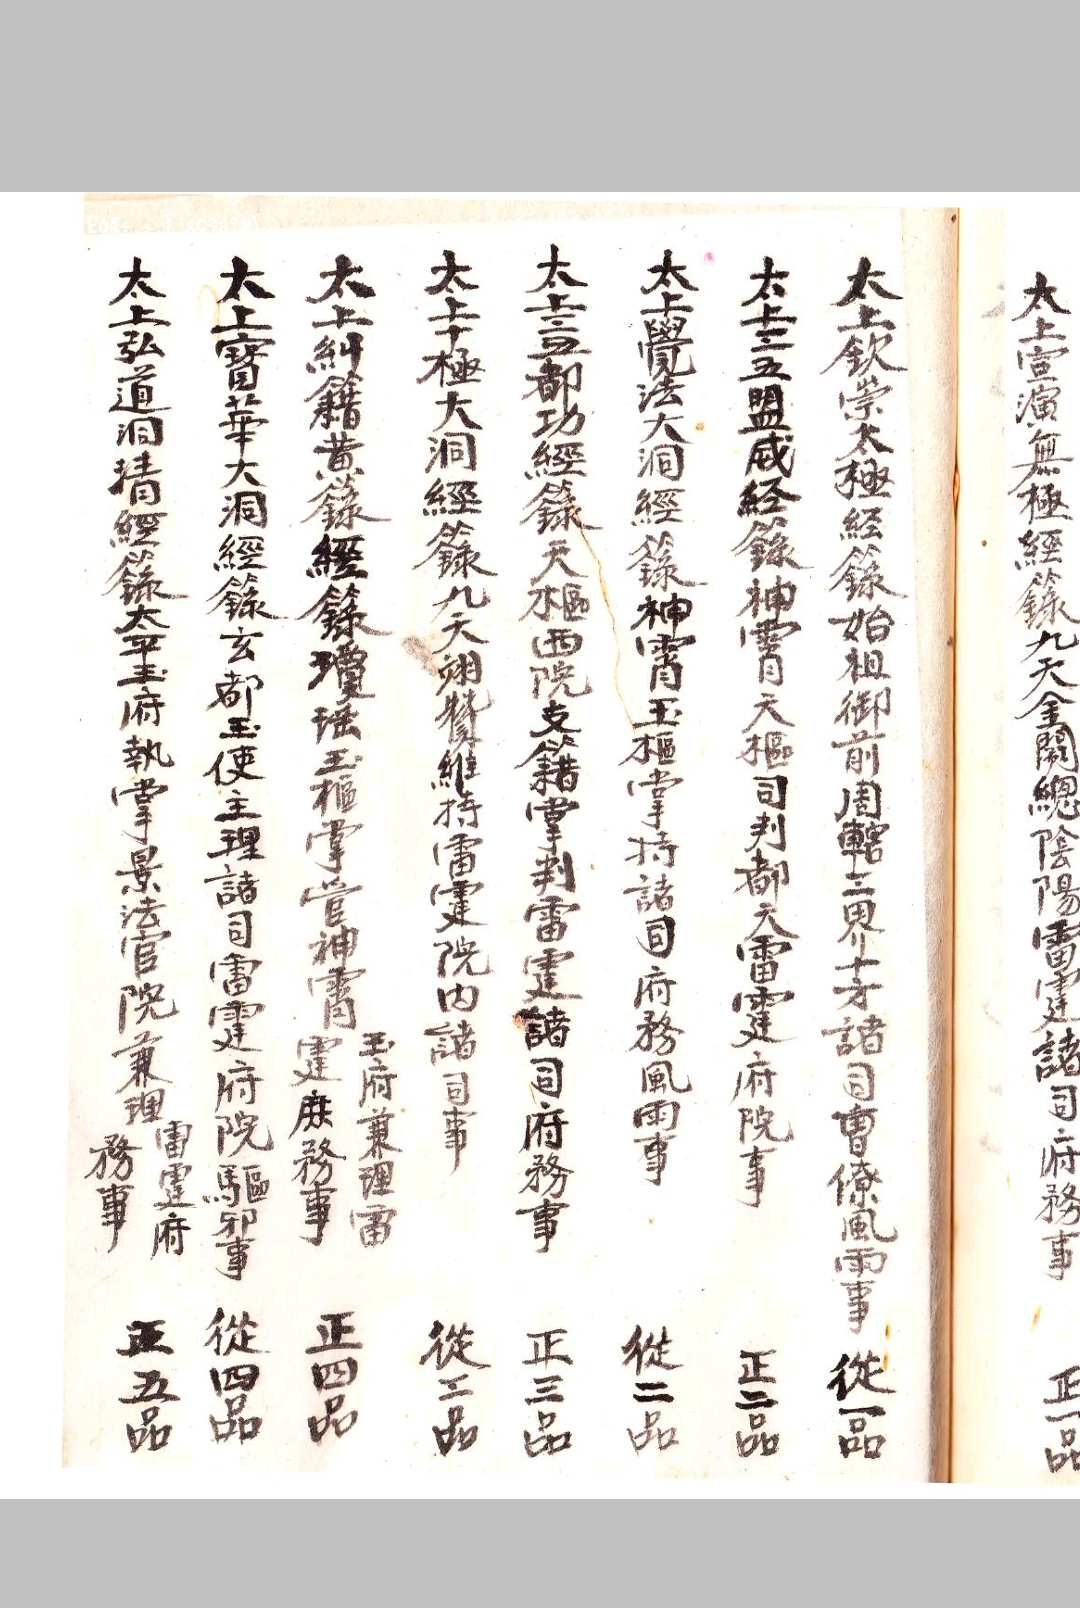 太上宣演無極經籙九天金闕總陰陽雷霆諸司府務事 正一品
太上欽崇太極经籙始祖御前周轄三界十方諸司曹僚風雨事 從一品
太上三五盟威经籙神霄天樞司判都天雷霆府院事 正二品
太上覺法大洞經籙神霄玉樞掌持諸司府務風雨事 從二品
太上三五都功經籙天樞西院支籍掌判雷霆諸司府務事 正三品
太上十極大洞經籙九天翊贊維持雷霆院内諸司事 從三品
太上糾籍黄籙經籙瓊瑶玉樞掌管神霄玉府兼理雷霆府務事 正四品
太上寳華大洞經籙玄都玉使主理諸司雷霆府院驅邪事 從四品
太上弘道洞精經籙太平玉府執掌景法官院兼理雷霆府務事 正五品